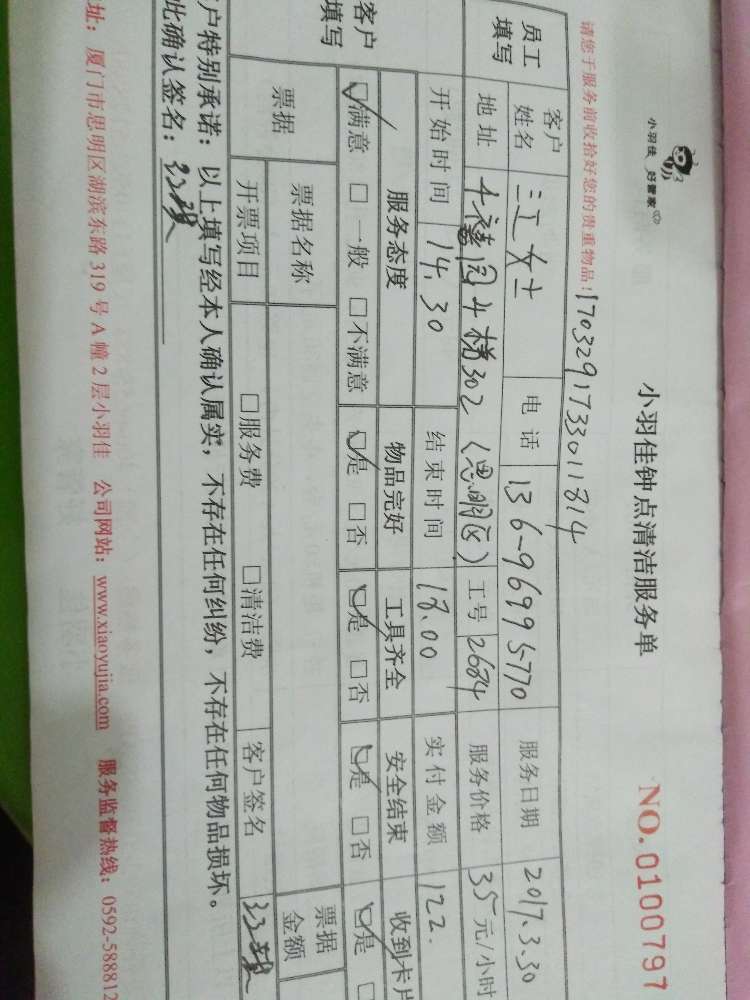 小羽佳 好管家
小羽佳钟点清洁服务单
NO.0100797
请您于服务前收拾好您的贵重物品！
1703291733011814
员工填写
客户姓名 江女士 电话 136-96995770 服务日期 2017.3.30
地址 禧园4梯302（思明区） 工号 2684 服务价格 35元/小时
开始时间 14.30 结束时间 18.00 实付金额 122.
客户填写
服务态度 物品完好 工具齐全 安全结束 收到卡片
☑满意 □一般 □不满意 ☑是 □否 ☑是 □否 ☑是 □否 ☑是 □
票据 票据名称 票据金额
开票项目 □服务费 □清洁费 客户签名
户特别承诺：以上填写经本人确认属实，不存在任何纠纷，不存在任何物品损坏。
此确认签名：
址：厦门市思明区湖滨东路 319 号 A 幢 2 层小羽佳 公司网站：www.xiaoyujia.com 服务监督热线：0592-588812